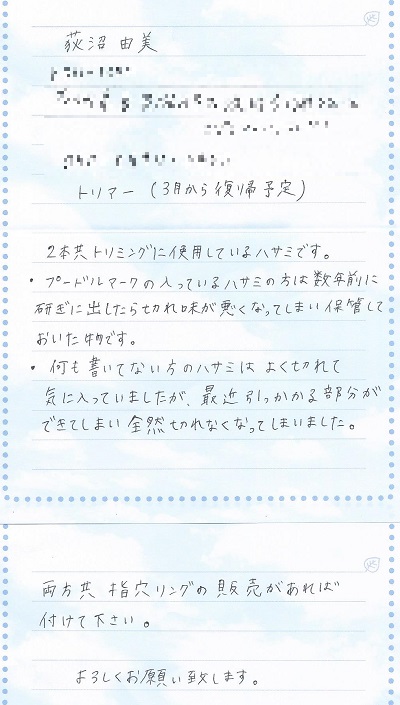 荻沼 由美
トリマー (3月から復帰予定)
2本共トリミングに使用しているハサミです。
・プードルマークの入っているハサミの方は数年前に
研ぎに出したら切れ味が悪くなってしまい保管して
おいた物です。
・何も書いてない方のハサミは よく切れて
気に入っていましたが、最近引っかかる部分が
できてしまい 全然切れなくなってしまいました。
両方共 指穴リングの販売があれば
付けて下さい。
よろしくお願い致します。